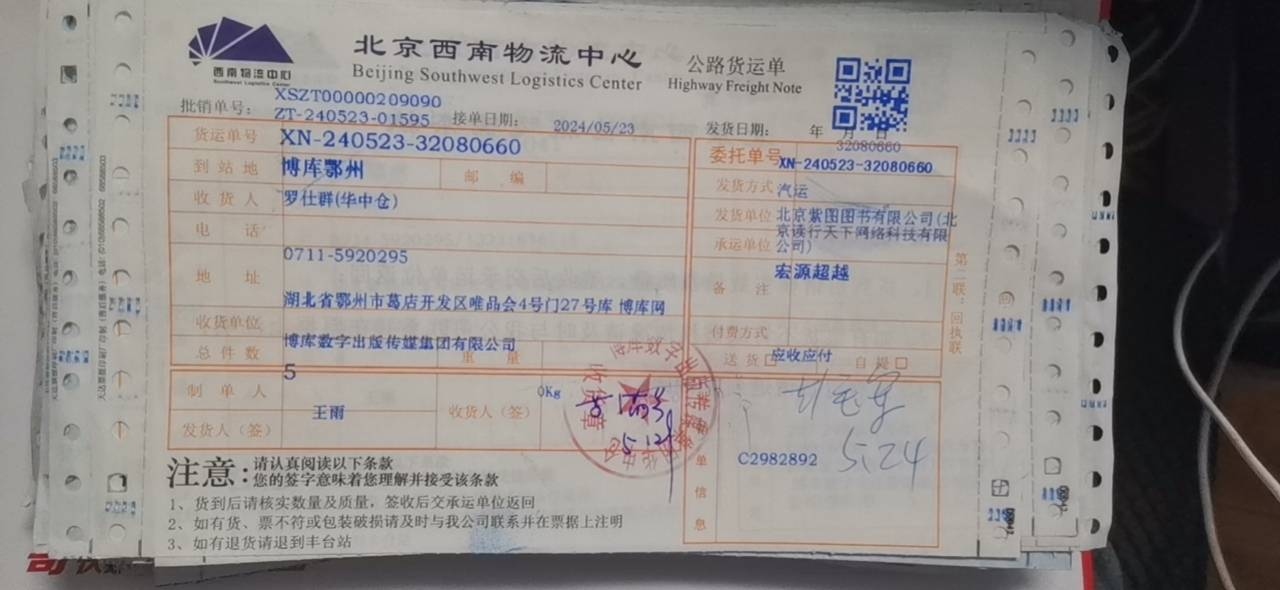 西南物流中心
Southwest Logistics Center
北京西南物流中心
Beijing Southwest Logistics Center
公路货运单
Highway Freight Note
批销单号:
XSZT00000209090
ZT-240523-01595
接单日期:
2024/05/23
发货日期:
年 月 日
32080660
货运单号
XN-240523-32080660
委托单号
XN-240523-32080660
到站地
博库鄂州
邮编
发货方式
汽运
收货人
罗仕群(华中仓)
发货单位
北京紫图图书有限公司(北
京读行天下网络科技有限
公司)
电话
0711-5920295
承运单位
宏源超越
地址
湖北省鄂州市葛店开发区唯品会4号门27号库 博库网
备注
收货单位
博库数字出版传媒集团有限公司
付费方式
应收应付
总件数
5
重量
0Kg
送货
自提
制单人
王雨
收货人(签)
发货人(签)
收货章
单
信
息
C2982892
5.24
第二联:回执联
注意:
请认真阅读以下条款
您的签字意味着您理解并接受该条款
1、货到后请核实数量及质量，签收后交承运单位返回
2、如有货、票不符或包装破损请及时与我公司联系并在票据上注明
3、如有退货请退到丰台站